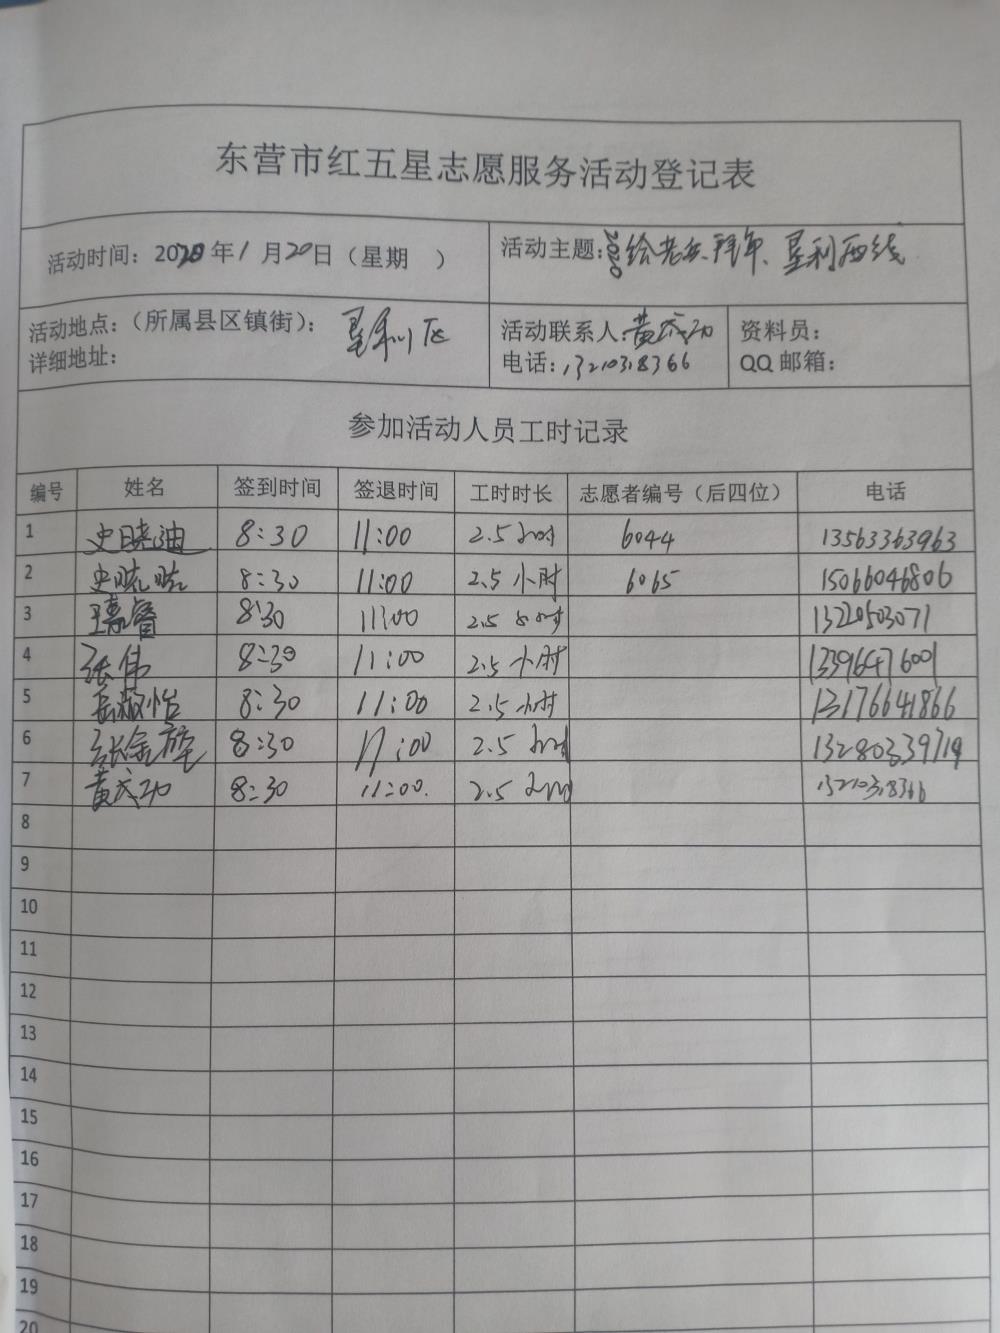 东营市红五星志愿服务活动登记表
活动时间：2020年1月20日（星期　）
活动主题：2020给老兵拜年、垦利西线
活动地点：（所属县区镇街）：垦利区
详细地址：
活动联系人：黄庆功
电话：13210318366
资料员：
QQ邮箱：
参加活动人员工时记录
编号 姓名 签到时间 签退时间 工时时长 志愿者编号（后四位） 电话
1 史晓迪 8:30 11:00 2.5小时 6044 13563363963
2 史晓晓 8:30 11:00 2.5小时 6065 15066046806
3 8:30 11:00 2.5小时 13220503071
4 张伟 8:30 11:00 2.5小时 13396476001
5 岳淑怡 8:30 11:00 2.5小时 13176641866
6 8:30 11:00 2.5小时
7 黄庆功 8:30 11:00. 2.5小时 13210318366
8
9
10
11
12
13
14
15
16
17
18
19
20